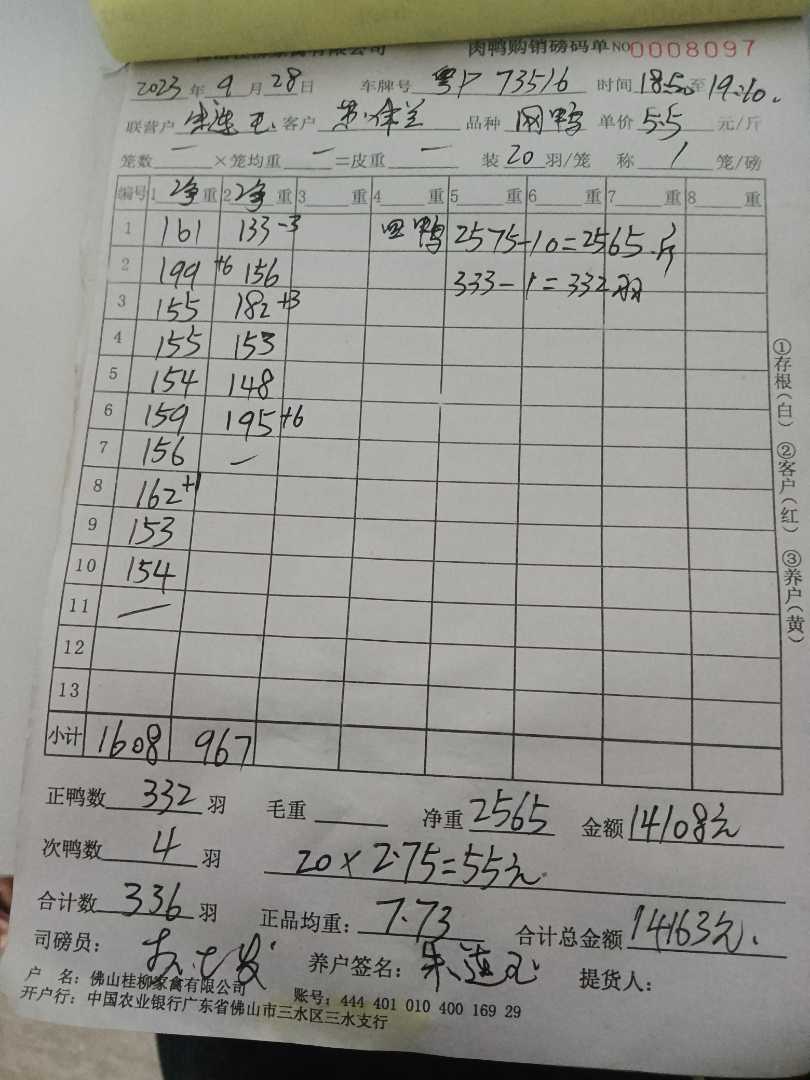 桂柳家禽有限公司 肉鸭购销磅码单 NO 0008097
2023年9月28日 车牌号 粤P 73516 时间 18:50至19:10.
联营户 朱莲玉 客户 品种 网鸭 单价 5.5 元/斤
笼数 一 ×笼均重 一 =皮重 一 装 20 羽/笼 称 1 笼/磅
编号 1 净 重 2 净 重 3 重 4 重 5 重 6 重 7 重 8 重
1 161 133-3 鸭 2575-10=2565斤
2 199+6 156 333-1=332羽
3 155 182+3
4 155 153
5 154 148
6 159 195+6
7 156 —
8 162+1
9 153
10 154
11 —
12
13
小计 1608 967
正鸭数 332 羽 毛重 净重 2565 金额 14108元
次鸭数 4 羽 20×2.75=55元.
合计数 336 羽 正品均重: 7.73 合计总金额 14163元.
司磅员: 养户签名: 朱莲玉 提货人:
户 名: 佛山桂柳家禽有限公司 账号: 444 401 010 400 169 29
开户行: 中国农业银行广东省佛山市三水区三水支行
①存根(白) ②客户(红) ③养户(黄)